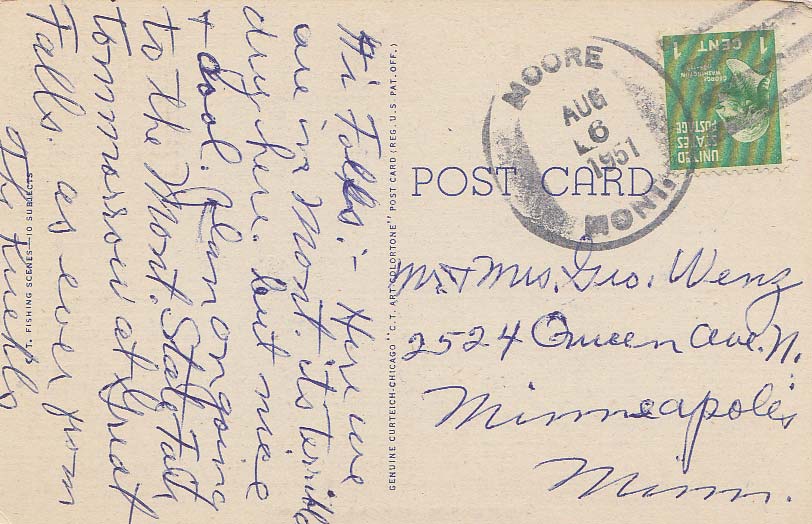 Hi Folks:- Here we
are in Mont. its terrible
dry here. but nice
+ cool. Plan on going
to the Mont. State Fair
tommorrow at Great
Falls. as ever from
The
T. FISHING SCENES—10 SUBJECTS
GENUINE CURTEICH-CHICAGO "C.T. ART-COLORTONE" POST CARD (REG. U.S. PAT. OFF.)
POST CARD
MOORE
AUG
6
1951
MONT.
1 CENT 1
GEORGE
WASHINGTON
UNITED
STATES
POSTAGE
Mr. + Mrs. Geo. Wenz
2524 Queen Ave. N.
Minneapolis
Minn.